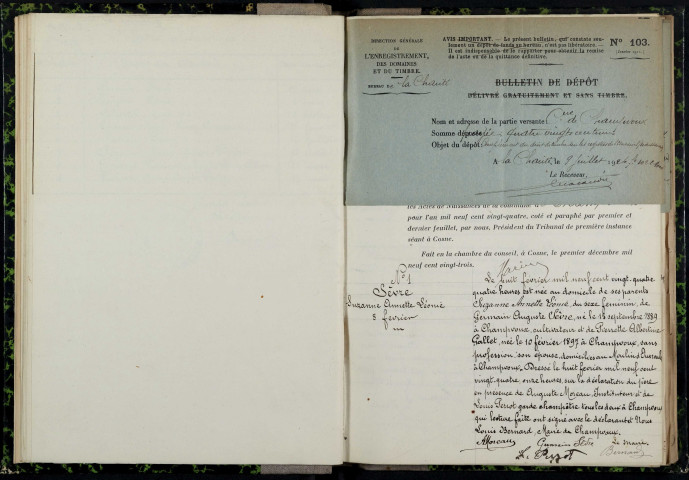 DIRECTION GÉNÉRALE
DE
L'ENREGISTREMENT,
DES DOMAINES
ET DU TIMBRE.
BUREAU D la Charité
AVIS IMPORTANT. — Le présent bulletin, qui constate seu-
lement un dépôt de fonds au bureau, n'est pas libératoire. —
Il est indispensable de le rapporter pour obtenir la remise
de l'acte ou de la quittance définitive.
N° 103.
BULLETIN DE DÉPÔT
DÉLIVRÉ GRATUITEMENT ET SANS TIMBRE.
Nom et adresse de la partie versante : Cne de Champvoux
Somme déposée : quatre vingts centimes
Objet du dépôt :
A la Charité, le 8 juillet 192
Le Receveur,
les Actes de Naissances de la commune d
pour l'an mil neuf cent vingt-quatre, coté et paraphé par premier et
dernier feuillet, par nous, Président du Tribunal de première instance
séant à Cosne.
Fait en la chambre du conseil, à Cosne, le premier décembre mil
neuf cent vingt-trois.
N° 1
Sèvre
Suzanne Annette Léonie
8 février
Le huit février mil neuf cent vingt-quatre
quatre heures est née au domicile de ses parents
Suzanne Annette Léonie, du sexe féminin, de
Germain Auguste Sèvre, né le 14 septembre 1889
à Champvoux, cultivateur et de Pierrette Albertine
Gallet, née le 10 février 1897 à Champvoux, sans
profession, son épouse, domiciliés au Moulins
à Champvoux. Dressé le huit février mil neuf cent
vingt-quatre, onze heures, sur la déclaration du père
en présence de Auguste Moreau, Instituteur et de
Louis Perrot garde champêtre tous les deux à Champvoux
qui lecture faite ont signé avec le déclarant et Nous
Louis Bernard, Maire de Champvoux.
Moreau
Germain Sèvre
Le Maire
L. Perrot
Bernard